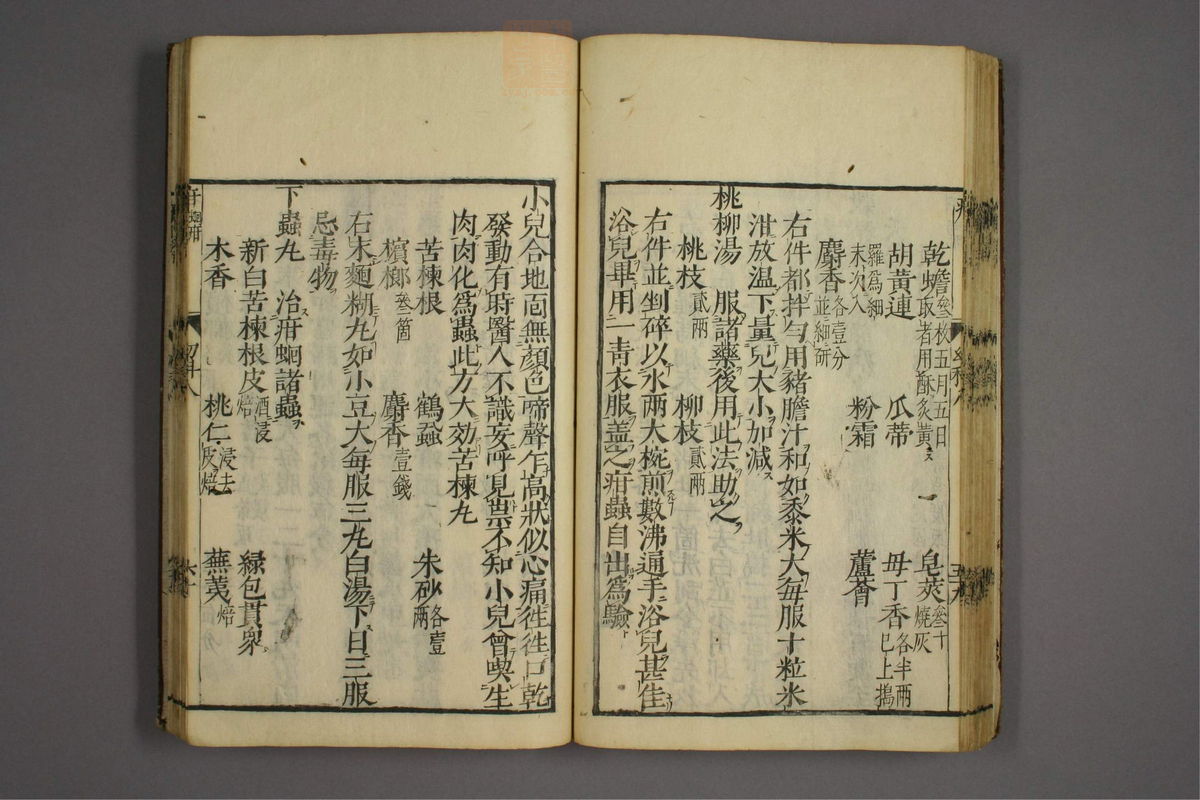 乾蟾叅枚五月五日取者用酥炙黃 皂莢叅十燒灰
胡黃連 瓜蒂 母丁香各半兩已上搗
羅爲細末次入
麝香各壹分並細研 粉霜 蘆薈
右件都拌勻用豬膽汁和如黍米大每服十粒米
泔放温下量兒大小加減
桃柳湯 服諸藥後用此法助之
桃枝貳兩 柳枝貳兩
右件並剉碎以水兩大椀煎數沸通手浴兒甚佳
浴兒畢用一青衣服盖之疳蟲自出爲驗
小兒合地面無顏色啼聲乍高狀似心痛徃徃口乾
發動有時醫人不識妄呼見祟不知小兒曾喫生
肉肉化爲蟲此方大効苦楝丸
苦楝根 鶴蝨 朱砂各壹兩
檳榔叅箇 麝香壹錢
右末麵糊丸如小豆大每服三丸白湯下日三服
忌毒物
下蟲丸 治疳蛔諸蟲
新白苦楝根皮酒浸焙 緑包貫衆
木香 桃仁浸去皮焙 蕪荑焙